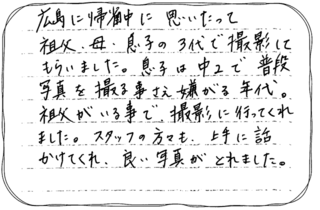 広島に帰省中に 思いたって
祖父、母、息子の3代で撮影して
もらいました。息子は中2で 普段
写真を撮る事さえ嫌がる年代。
祖父がいる事で、撮影に行ってくれ
ました。スタッフの方々も、上手に話
かけてくれ、良い写真が とれました。